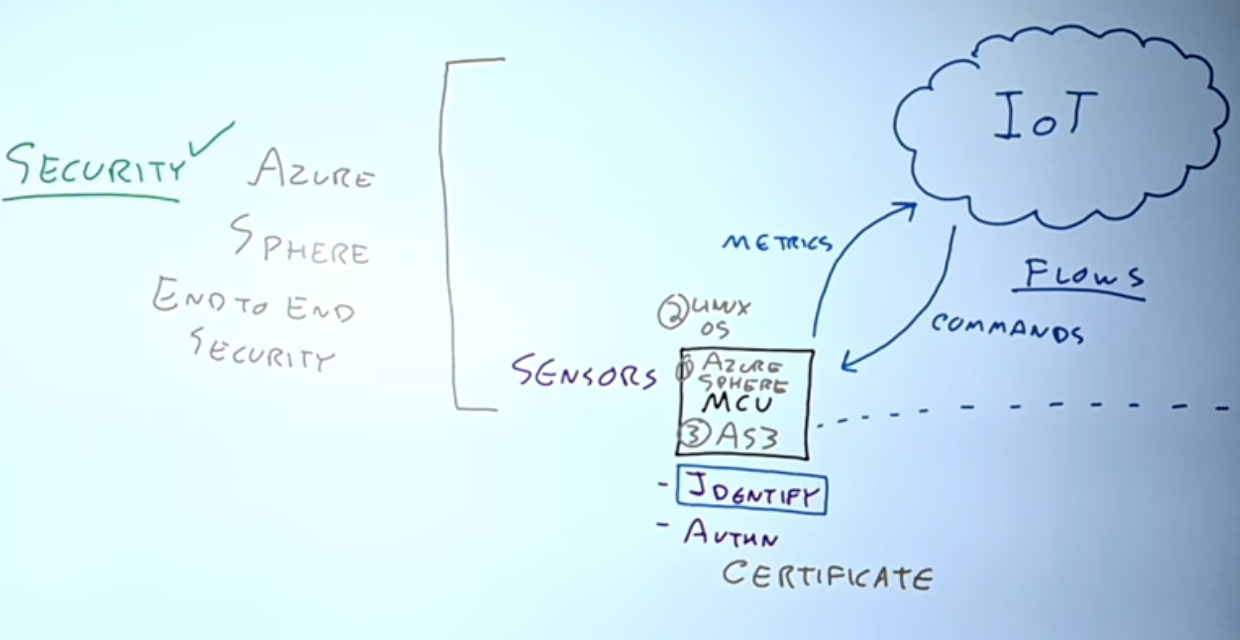 SECURITY
AZURE
SPHERE
END TO END
SECURITY
IoT
METRICS
FLOWS
COMMANDS
② LINUX
OS
SENSORS
① AZURE
SPHERE
MCU
③ AS3
- IDENTIFY
- AUTHN
CERTIFICATE